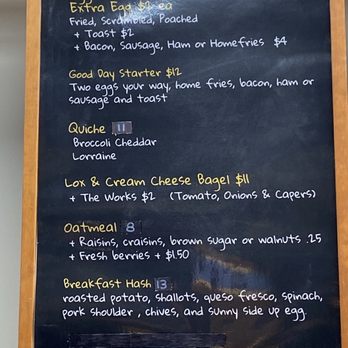 Extra Egg $2 ea
Fried, Scrambled, Poached
+ Toast $2
+ Bacon, Sausage, Ham or Homefries $4
Good Day Starter $12
Two eggs your way, home fries, bacon, ham or
sausage and toast
Quiche 11
Broccoli Cheddar
Lorraine
Lox & Cream Cheese Bagel $11
+ The Works $2 (Tomato, Onions & Capers)
Oatmeal 8
+ Raisins, craisins, brown sugar or walnuts .25
+ Fresh berries + $1.50
Breakfast Hash 13
roasted potato, shallots, queso fresco, spinach,
pork shoulder, chives, and sunny side up egg